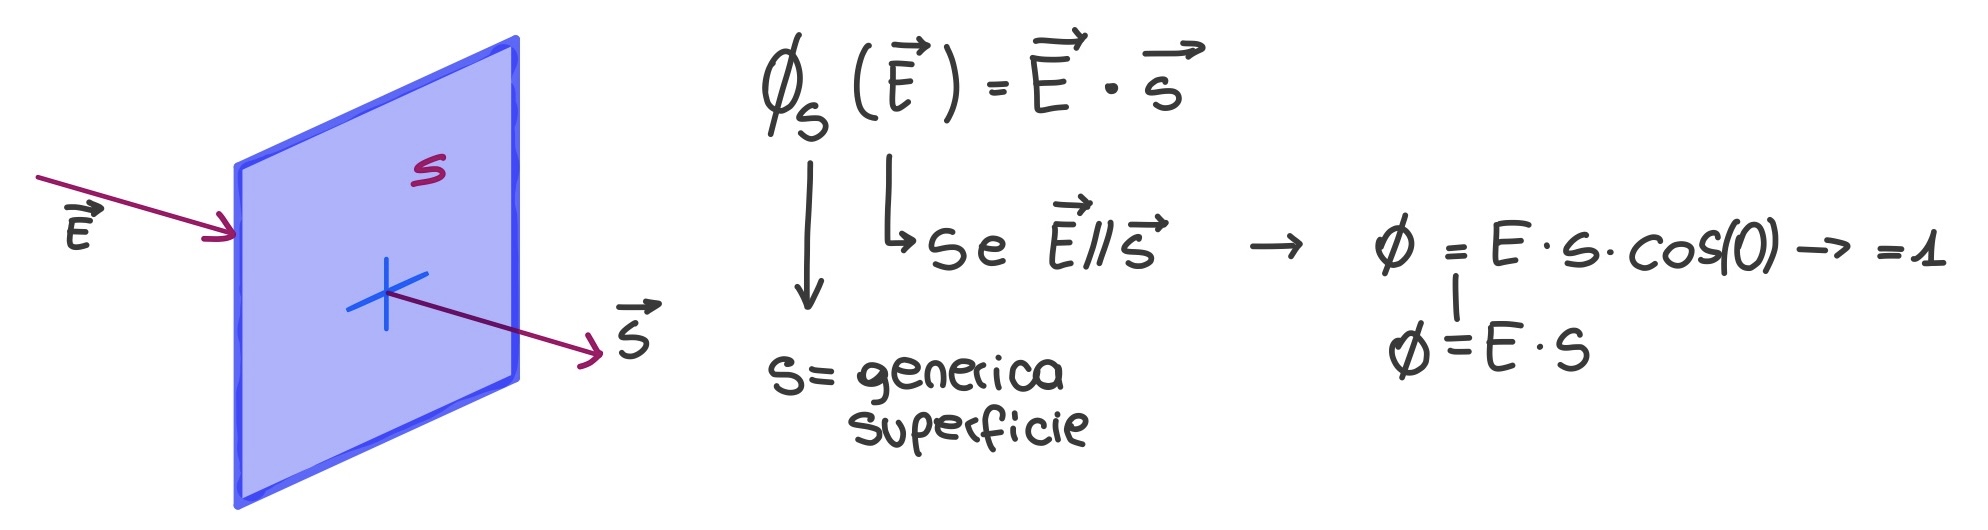 S
E⃗
S⃗
ϕₛ (E⃗) = E⃗ · s⃗
Se E⃗ // s⃗ → ϕ = E · s · cos(0) → = 1
ϕ = E · s
s = generica
superficie